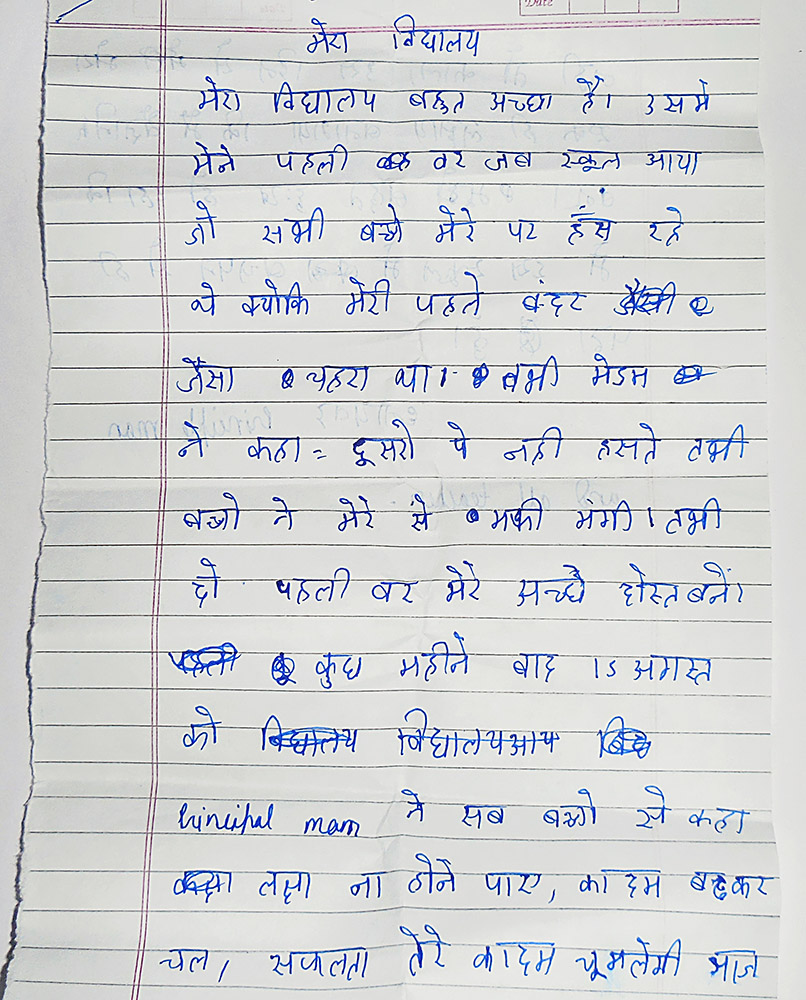 Date
मेरा विद्यालय
मेरा विद्यालय बहुत अच्छा है। उसमे
मेने पहली वर जब स्कूल आया
जो सभी बच्चे मेरे पर हँस रहे
थे क्योकि मेरी पहले बंदर
जैसा चहरा था। तभी मेडम
ने कहा = दूसरो पे नही हसते तभी
बच्चो ने मेरे से मफी मंगी। तभी
दो पहली बर मेरे अच्छे दोस्त बनें।
कुछ महीने बाद 15 अगस्त
को विद्यालय आय
principal mam ने सब बच्चो से कहा
लक्ष ना होने पाए, कादम बढकर
चल, सफलता तेरे कादम चूमलेगी आज